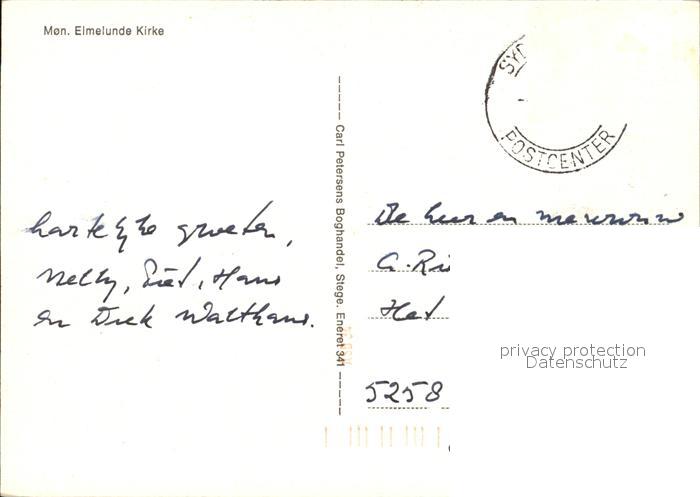 Møn. Elmelunde Kirke
SYD
POSTCENTER
hartelijke groeten,
Nelly, Hans
en Dick Walthaus.
Carl Petersens Boghandel, Stege. Eneret 341
De heer en mevrouw
A. Ri
Het
5258
privacy protection
Datenschutz